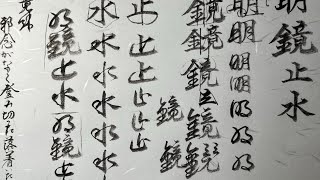 明鏡止水
明明明明明明
鏡鏡鏡鏡鏡
鏡鏡
止止止止止止
水水水水水水
明鏡止水明鏡止
邪念がなく登み切った落着いた